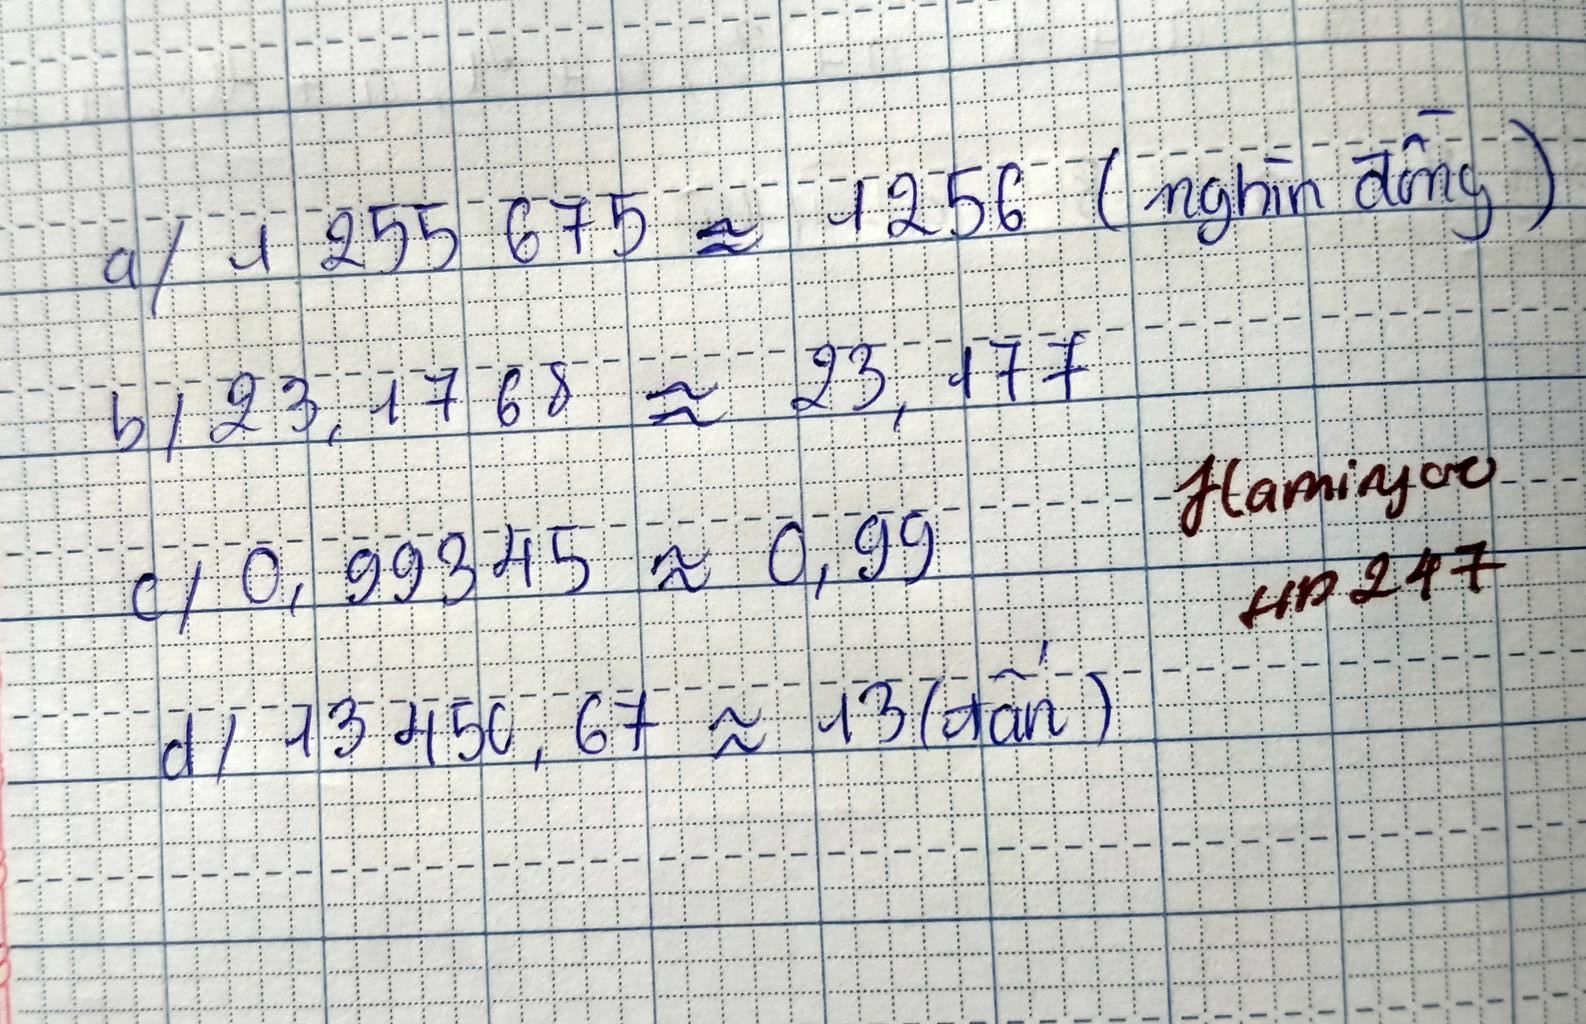 a/ 1 255 675 ≈ 1256 (nghìn đồng)
b/ 23,1768 ≈ 23,177
c/ 0,99345 ≈ 0,99
Hamingvc
HD247
d/ 13 450,67 ≈ 13 (tấn)